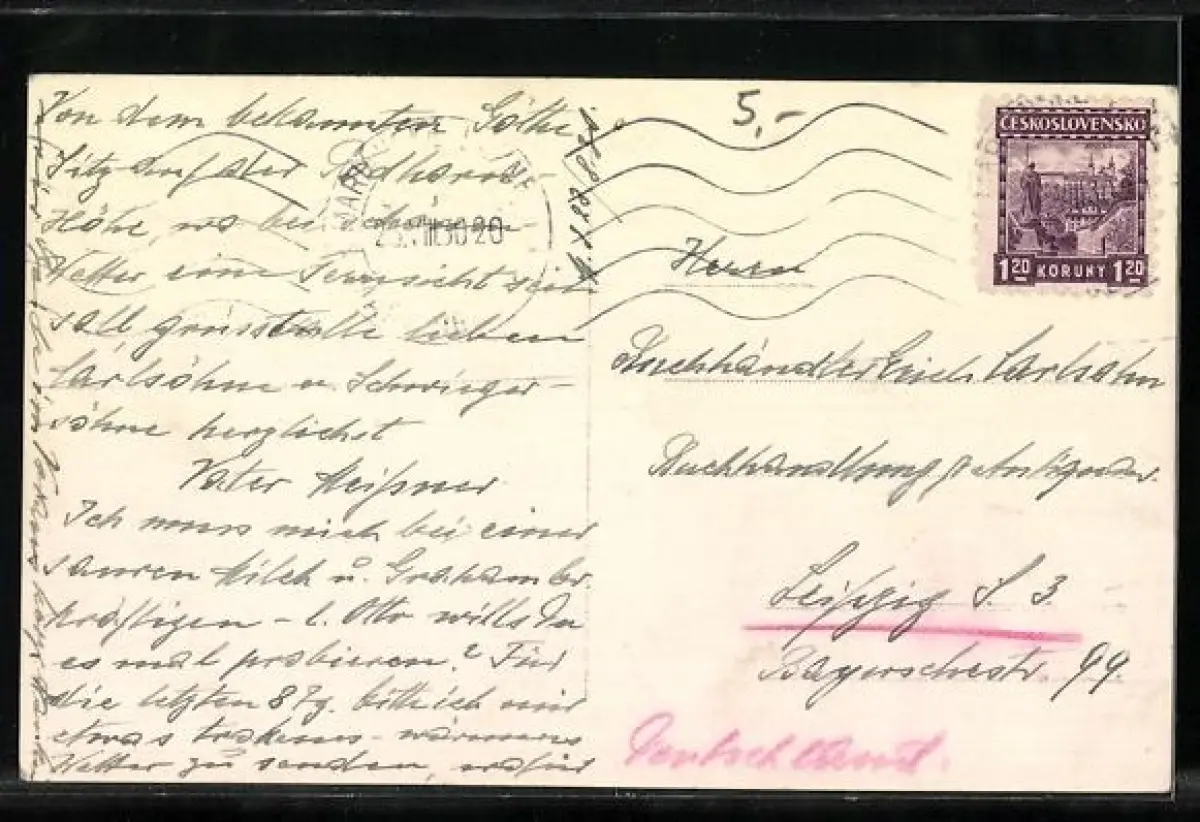 Von dem bekannten Göthe
Sitz auf der Podhorn
Höhe, wo bei schönem
Wetter eine Fernsicht sein
soll, grüsst alle lieben
Carlsöhne u. Schwieger-
söhne herzlichst
Vater Meißner
Ich muss mich bei einer
sauren Milch u. Grahambr.
kräftigen - l. Otto willst Du
es mal probieren? Für
die letzten 8 Tg. bitte ich mir
etwas trokenes - wärmeres
Wetter zu senden, wofür
5,-
ČESKOSLOVENSKO
1 20 KORUNY 1 20
30 20
Herrn
Buchhändler Erich Carlsohn
Buchhandlung & Antiquar.
Leipzig S. 3.
Bayerschestr. 99.
Deutschland.